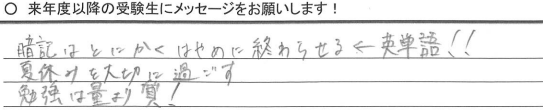 ○ 来年度以降の受験生にメッセージをお願いします！
暗記はとにかくはやめに終わらせる←英単語!!
夏休みを大切に過ごす
勉強は量より質！